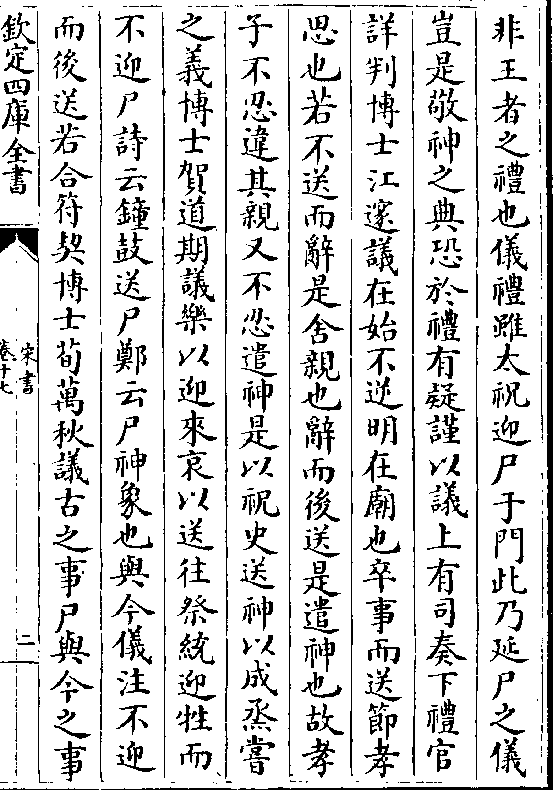 非王者之禮也儀禮雖太祝迎尸于門此乃延尸之儀
豈是敬神之典恐於禮有疑謹以議上有司奏下禮官
詳判博士江邃議在始不逆明在廟也卒事而送節孝
思也若不送而辭是舍親也辭而後送是遣神也故孝
子不忍違其親又不忍遣神是以祝史送神以成烝嘗
之義博士賀道期議樂以迎來哀以送往祭統迎牲而
不迎尸詩云鐘鼓送尸鄭云尸神象也與今儀注不迎
而後送若合符契博士荀萬秋議古之事尸與今之事
欽定四庫全書
宋書
卷十七
二